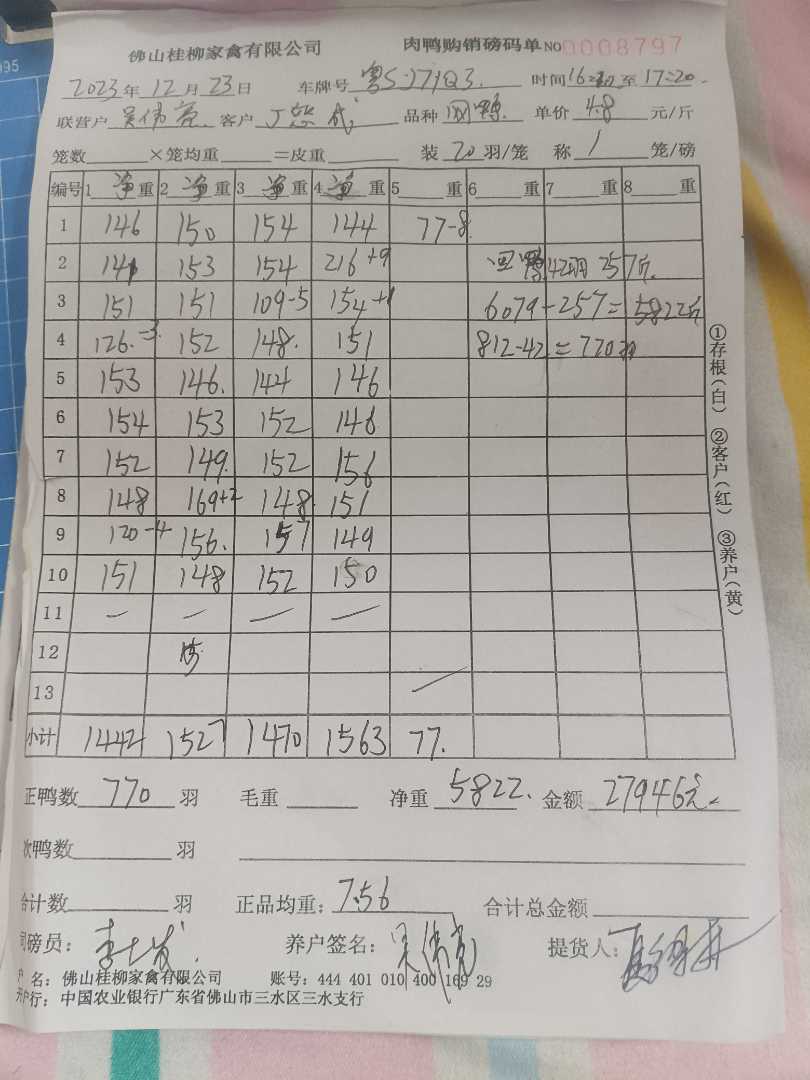 佛山桂柳家禽有限公司 肉鸭购销磅码单 NO 0008797
2023年12月23日 车牌号 粤S·J71Q3. 时间16 至17:20.
联营户 吴伟亮 客户 品种 单价 4.8 元/斤
笼数 ×笼均重 =皮重 装 20 羽/笼 称 1 笼/磅
编号 1 净 重 2 净 重 3 净 重 4 净 重 5 重 6 重 7 重 8 重
1 146 150 154 144 77-8
2 141 153 154 216+9 回鸭42羽 257斤.
3 151 151 109-5 154+1 6079-257=5822斤
4 126.-3 152 148. 151 812-42=770羽
5 153 146. 144 146
6 154 153 152 146
7 152 149. 152 156
8 148 169+2 148. 151
9 120-4 156. 157 149
10 151 148 152 150
11 — — — —
12
13 —
小计 1442 1527 1470 1563 77.
正鸭数 770 羽 毛重 净重 5822. 金额 27946元.
次鸭数 羽
合计数 羽 正品均重: 7.56 合计总金额
司磅员: 养户签名: 吴伟亮 提货人:
户 名: 佛山桂柳家禽有限公司 账号: 444 401 010 400 169 29
开户行: 中国农业银行广东省佛山市三水区三水支行
①存根(白) ②客户(红) ③养户(黄)